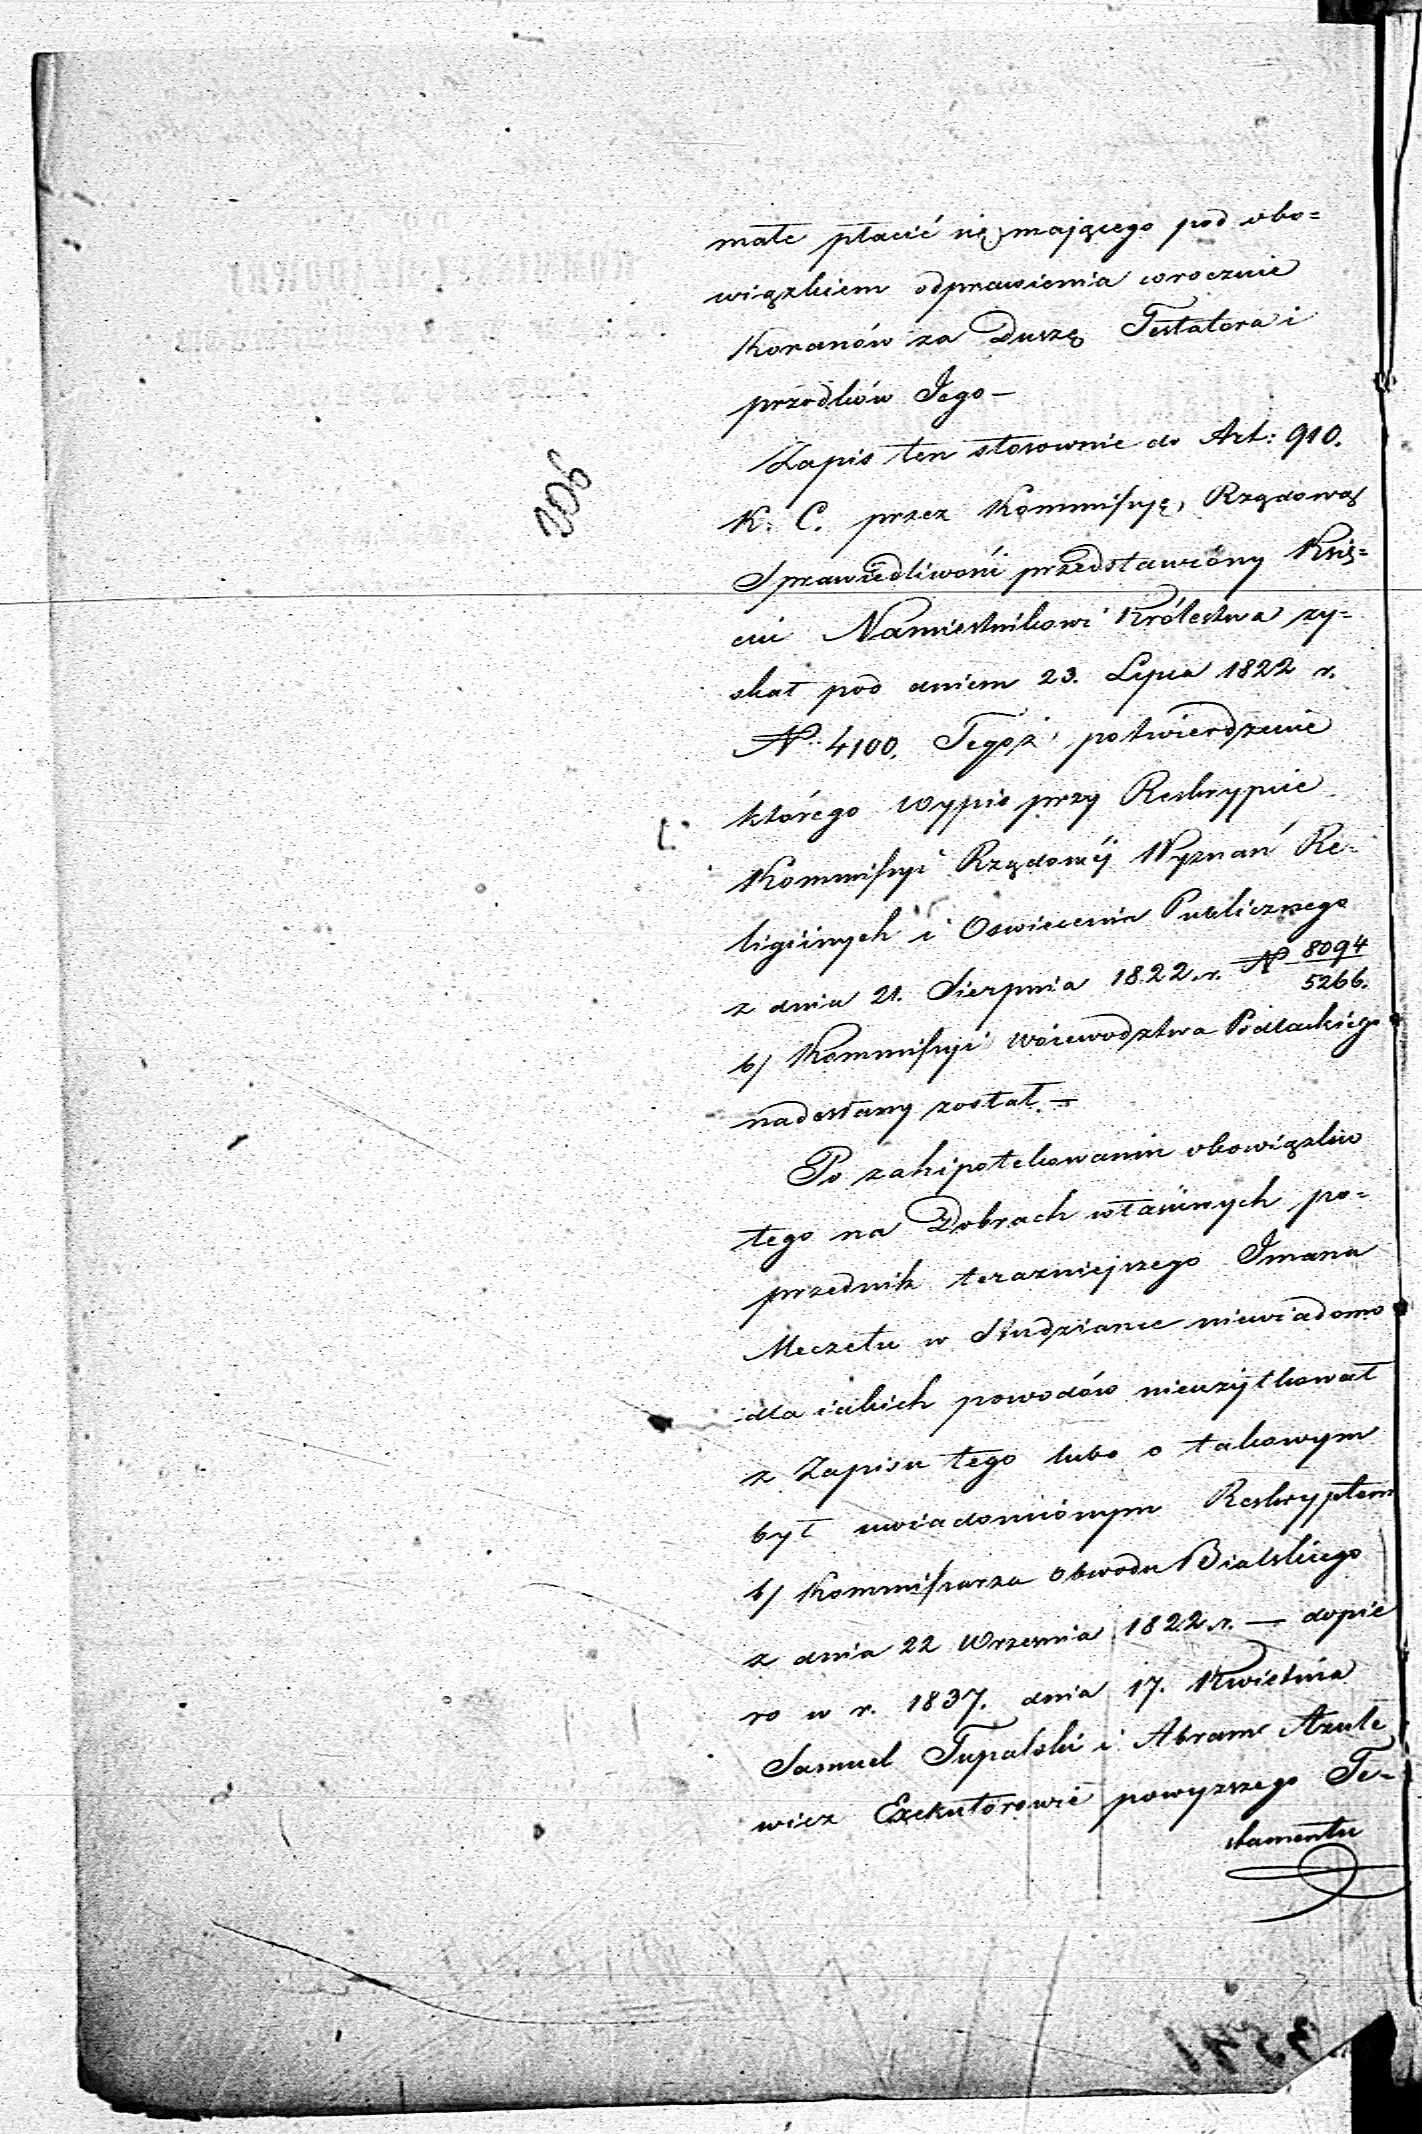 małe płacić się mającego pod obo=
wiązkiem odprawienia corocznie
Koranów za Duszę Testatora i
przodków Jego —
Zapis ten stosownie do Art: 910.
K. C. przez Kommissyę Rządową
Sprawiedliwości przedstawióny Xsię=
ciu Namiestnikowi Królestwa zy=
skał pod dniem 23. Lipca 1822 r.
N. 4100. Tegoż potwierdzenie
którego Wypis przy Reskrypcie
Kommissyi Rządowéj Wyznań Re=
ligiinych i Oswiecenia Publicznego
z dnia 21. Sierpnia 1822. r. N 8094/5266.
b/ Kommissyi Woiewodztwa Podlaskiego
nadesłany został. —
Po zahipotekowaniu obowiązku
tego na Dobrach właściwych po=
przednik terazniejszego Imana
Meczetu w Studziance niewiadomo
dla iakich powodów nieużytkował
z Zapisu tego lubo o takowym
był uwiadomiónym Reskryptem
b/ Kommissarza Obwodu Bialskiego
z dnia 22 Wrzesnia 1822. r. — dopie
ro w r. 1837. dnia 17. Kwietnia
Samuel Tupalski i Abram Azule
wicz Exekutorowie powyższego Te=
stamentu
206